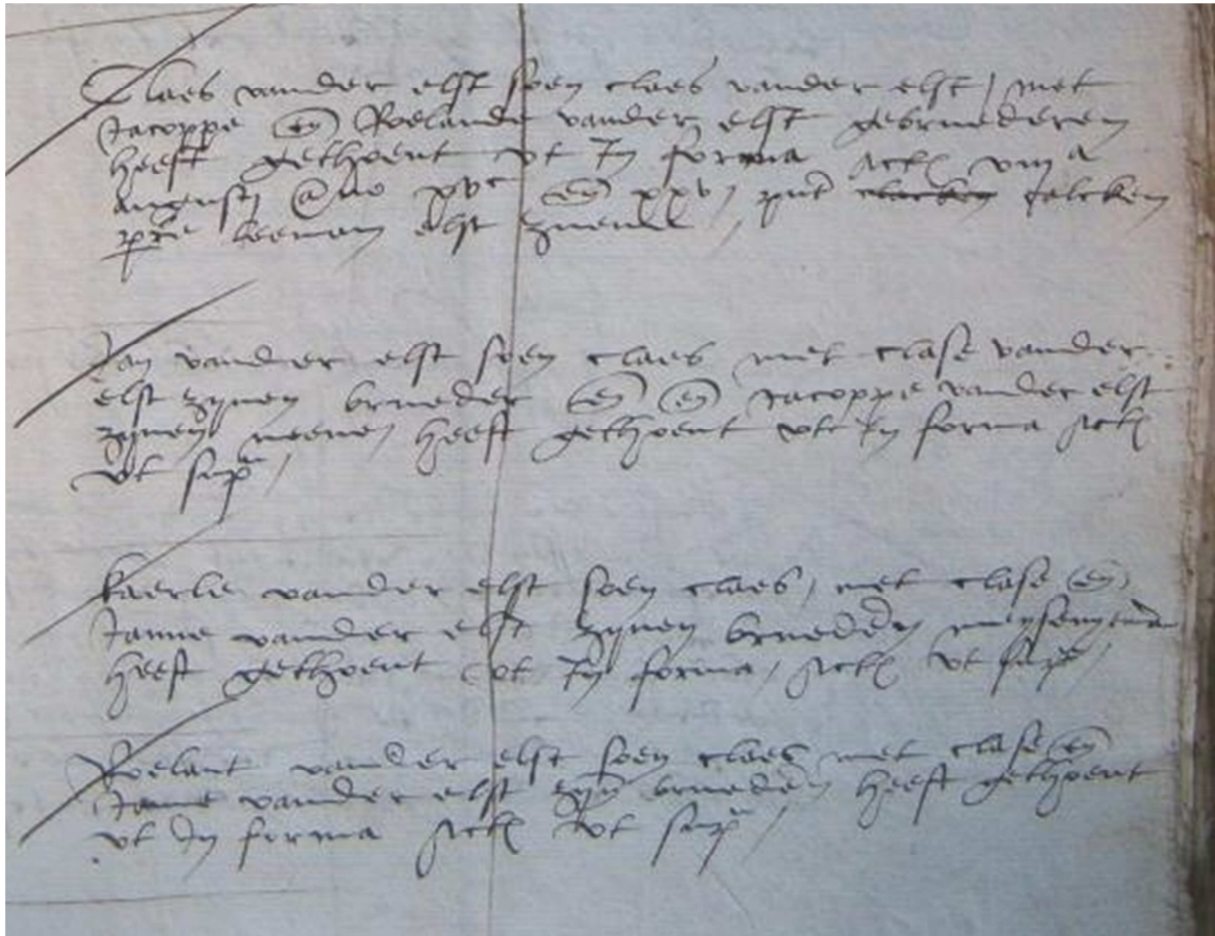 Claes vander elst soen claes vander elst / met
Jacoppe en Roelande vander elst gebruederen
heeft gethoent ut In forma actu viija
augusti Ao xvc en xxv / pnt clacken falcken
leeman elst
Jan vander elst soen claes met clase vander
elst zynen brueder en en Jacoppe vander elst
zynen neeven heeft gethoent ut In forma actu
ut supa /
kaerle vander elst soen claes / met clase en
Janne vander elst zynen brueden
heeft gethoent ut In forma / actu ut supa /
Roelant vander elst soen claes met clase en
Janne vander elst zyn brueden heeft gethoent
ut In forma actu ut supa /